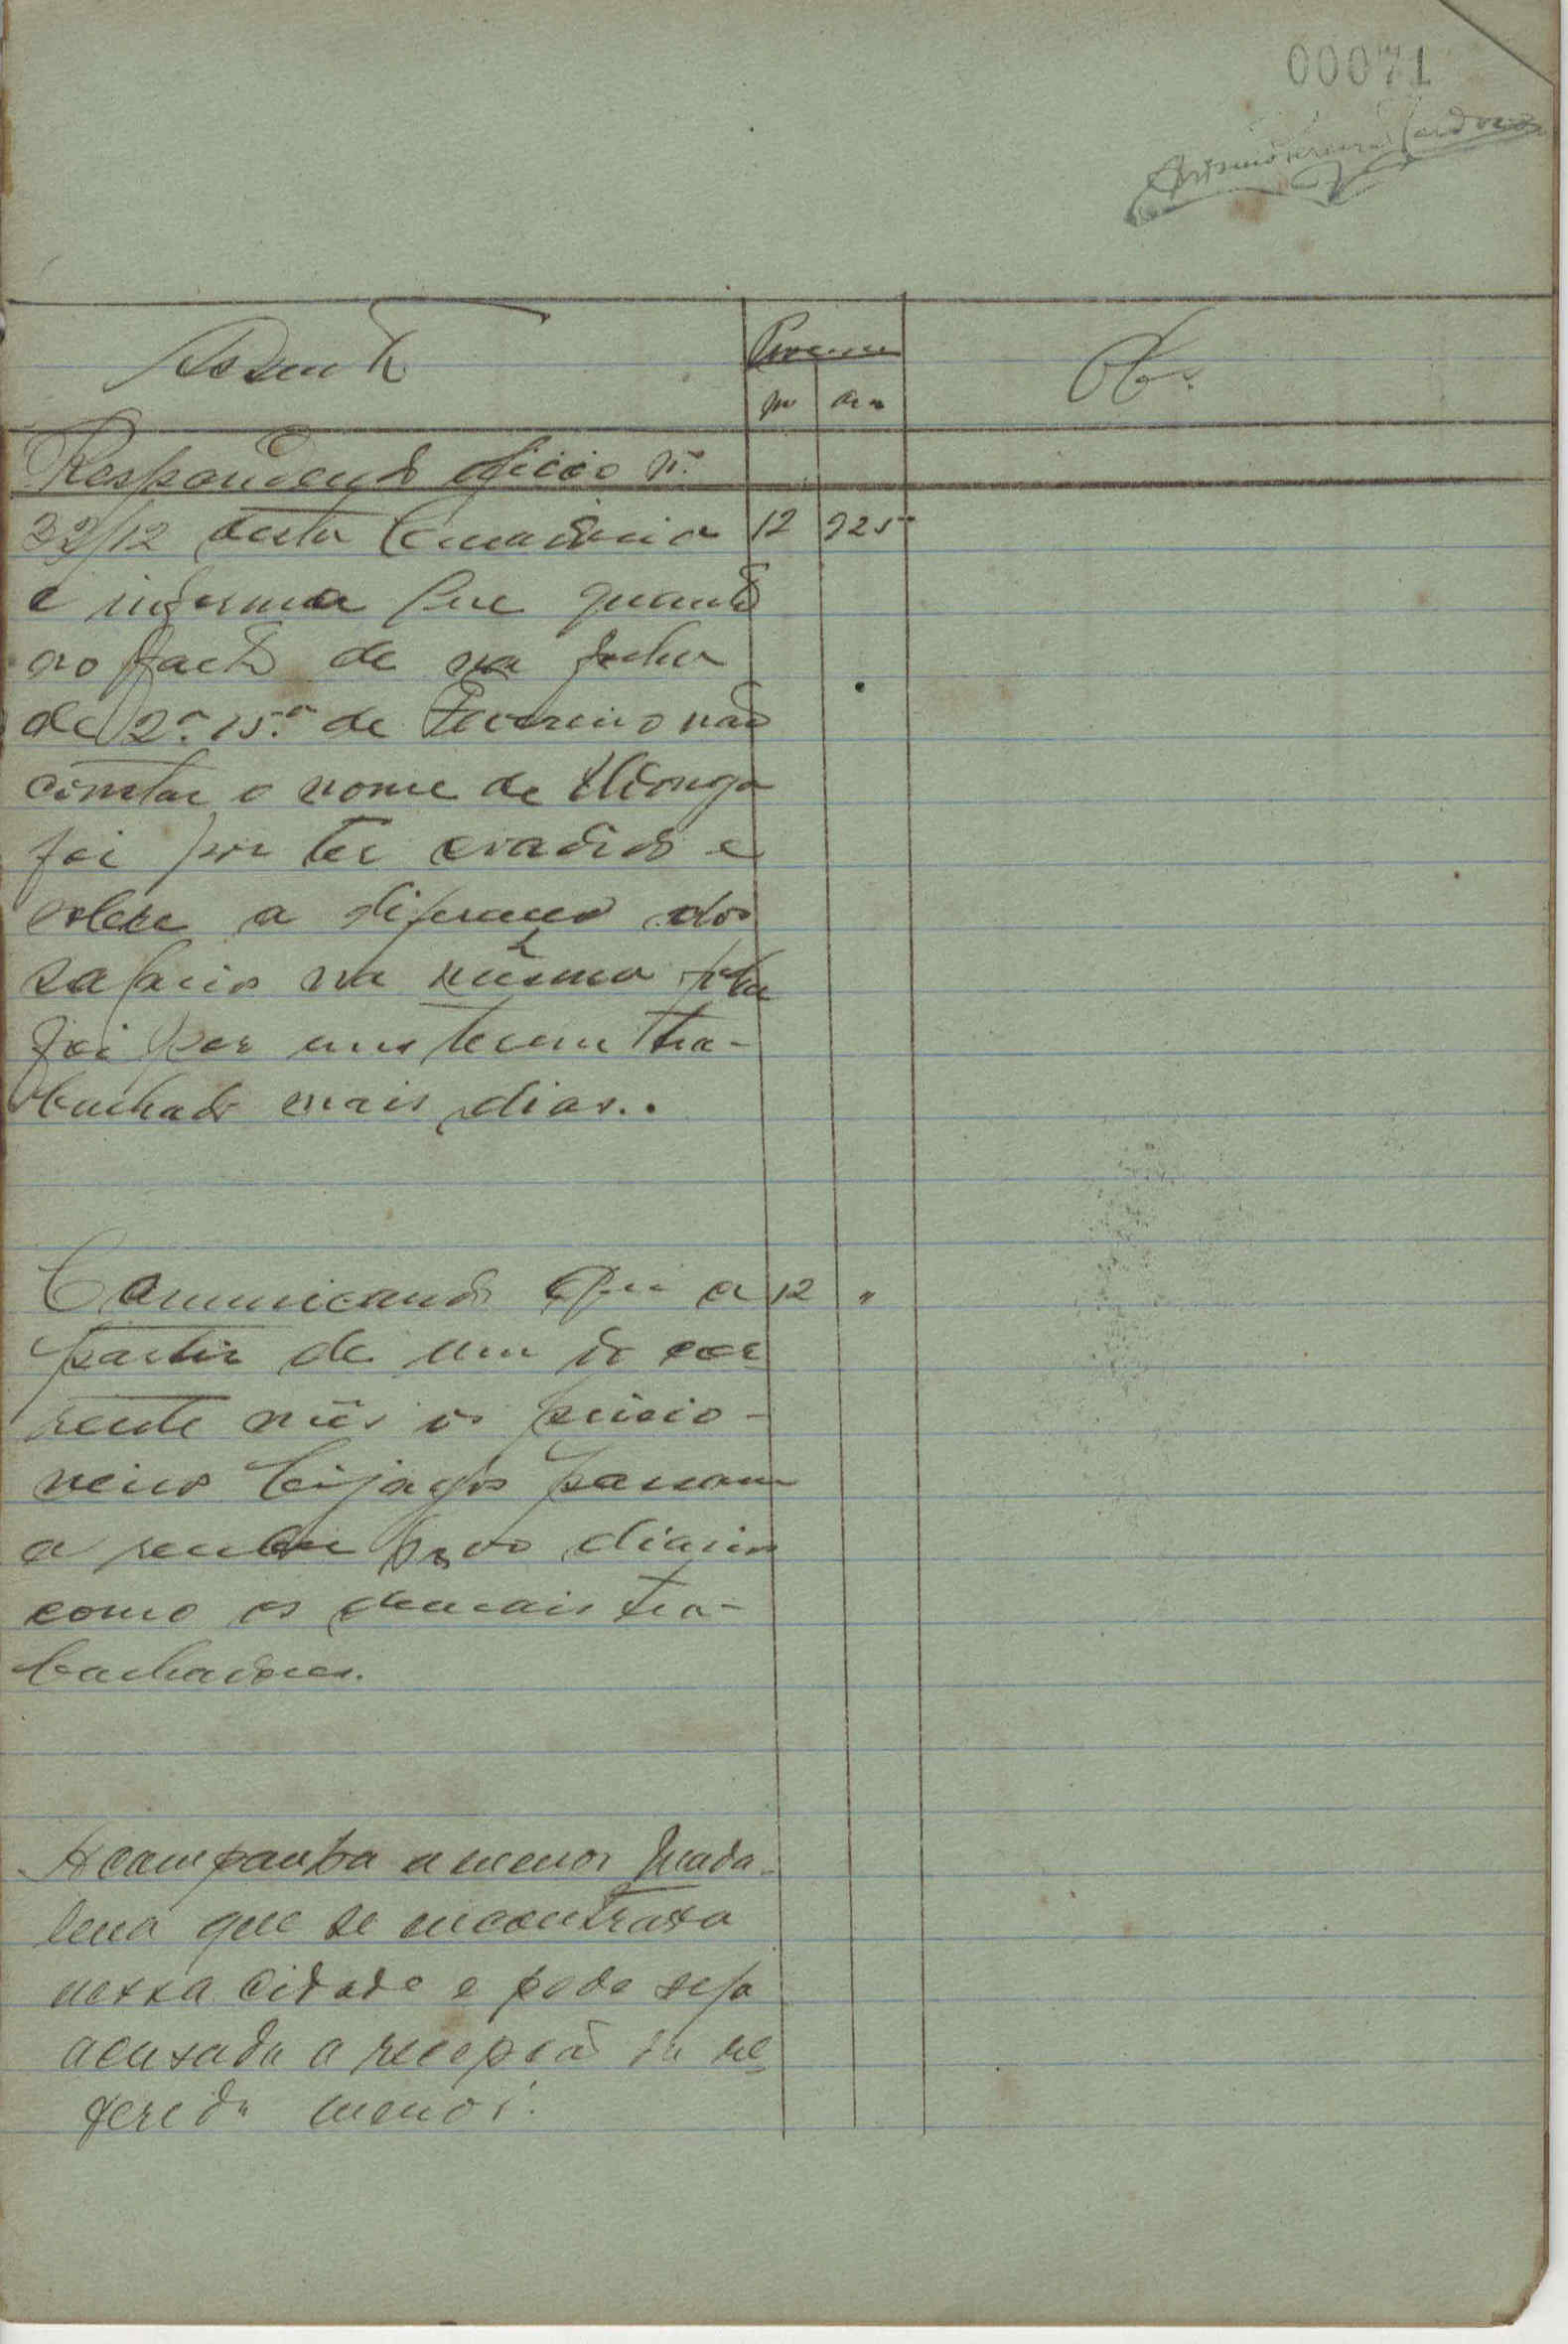 00071
Assunto
Processo
Nº
Ano
Obs.
Respondendo oficio nº
32/12 desta Comandancia 12 925
e informa que quanto
ao facto de na folha
de 2ª 15ª de Fevereiro não
constar o nome de
foi por ter evadido e
sobre a diferença dos
salarios na mesma folha
foi por uns terem tra-
balhado mais dias..
Comunicando que a 12 "
partir de um do cor
rente mês os prisio-
neiros bijagós passam
a receber diarios
como os demais tra-
balhadores.
Acompanha a menor Mada-
lena que se encontrava
nessa cidade e pede seja
acusada a recepção da re
ferida menor.